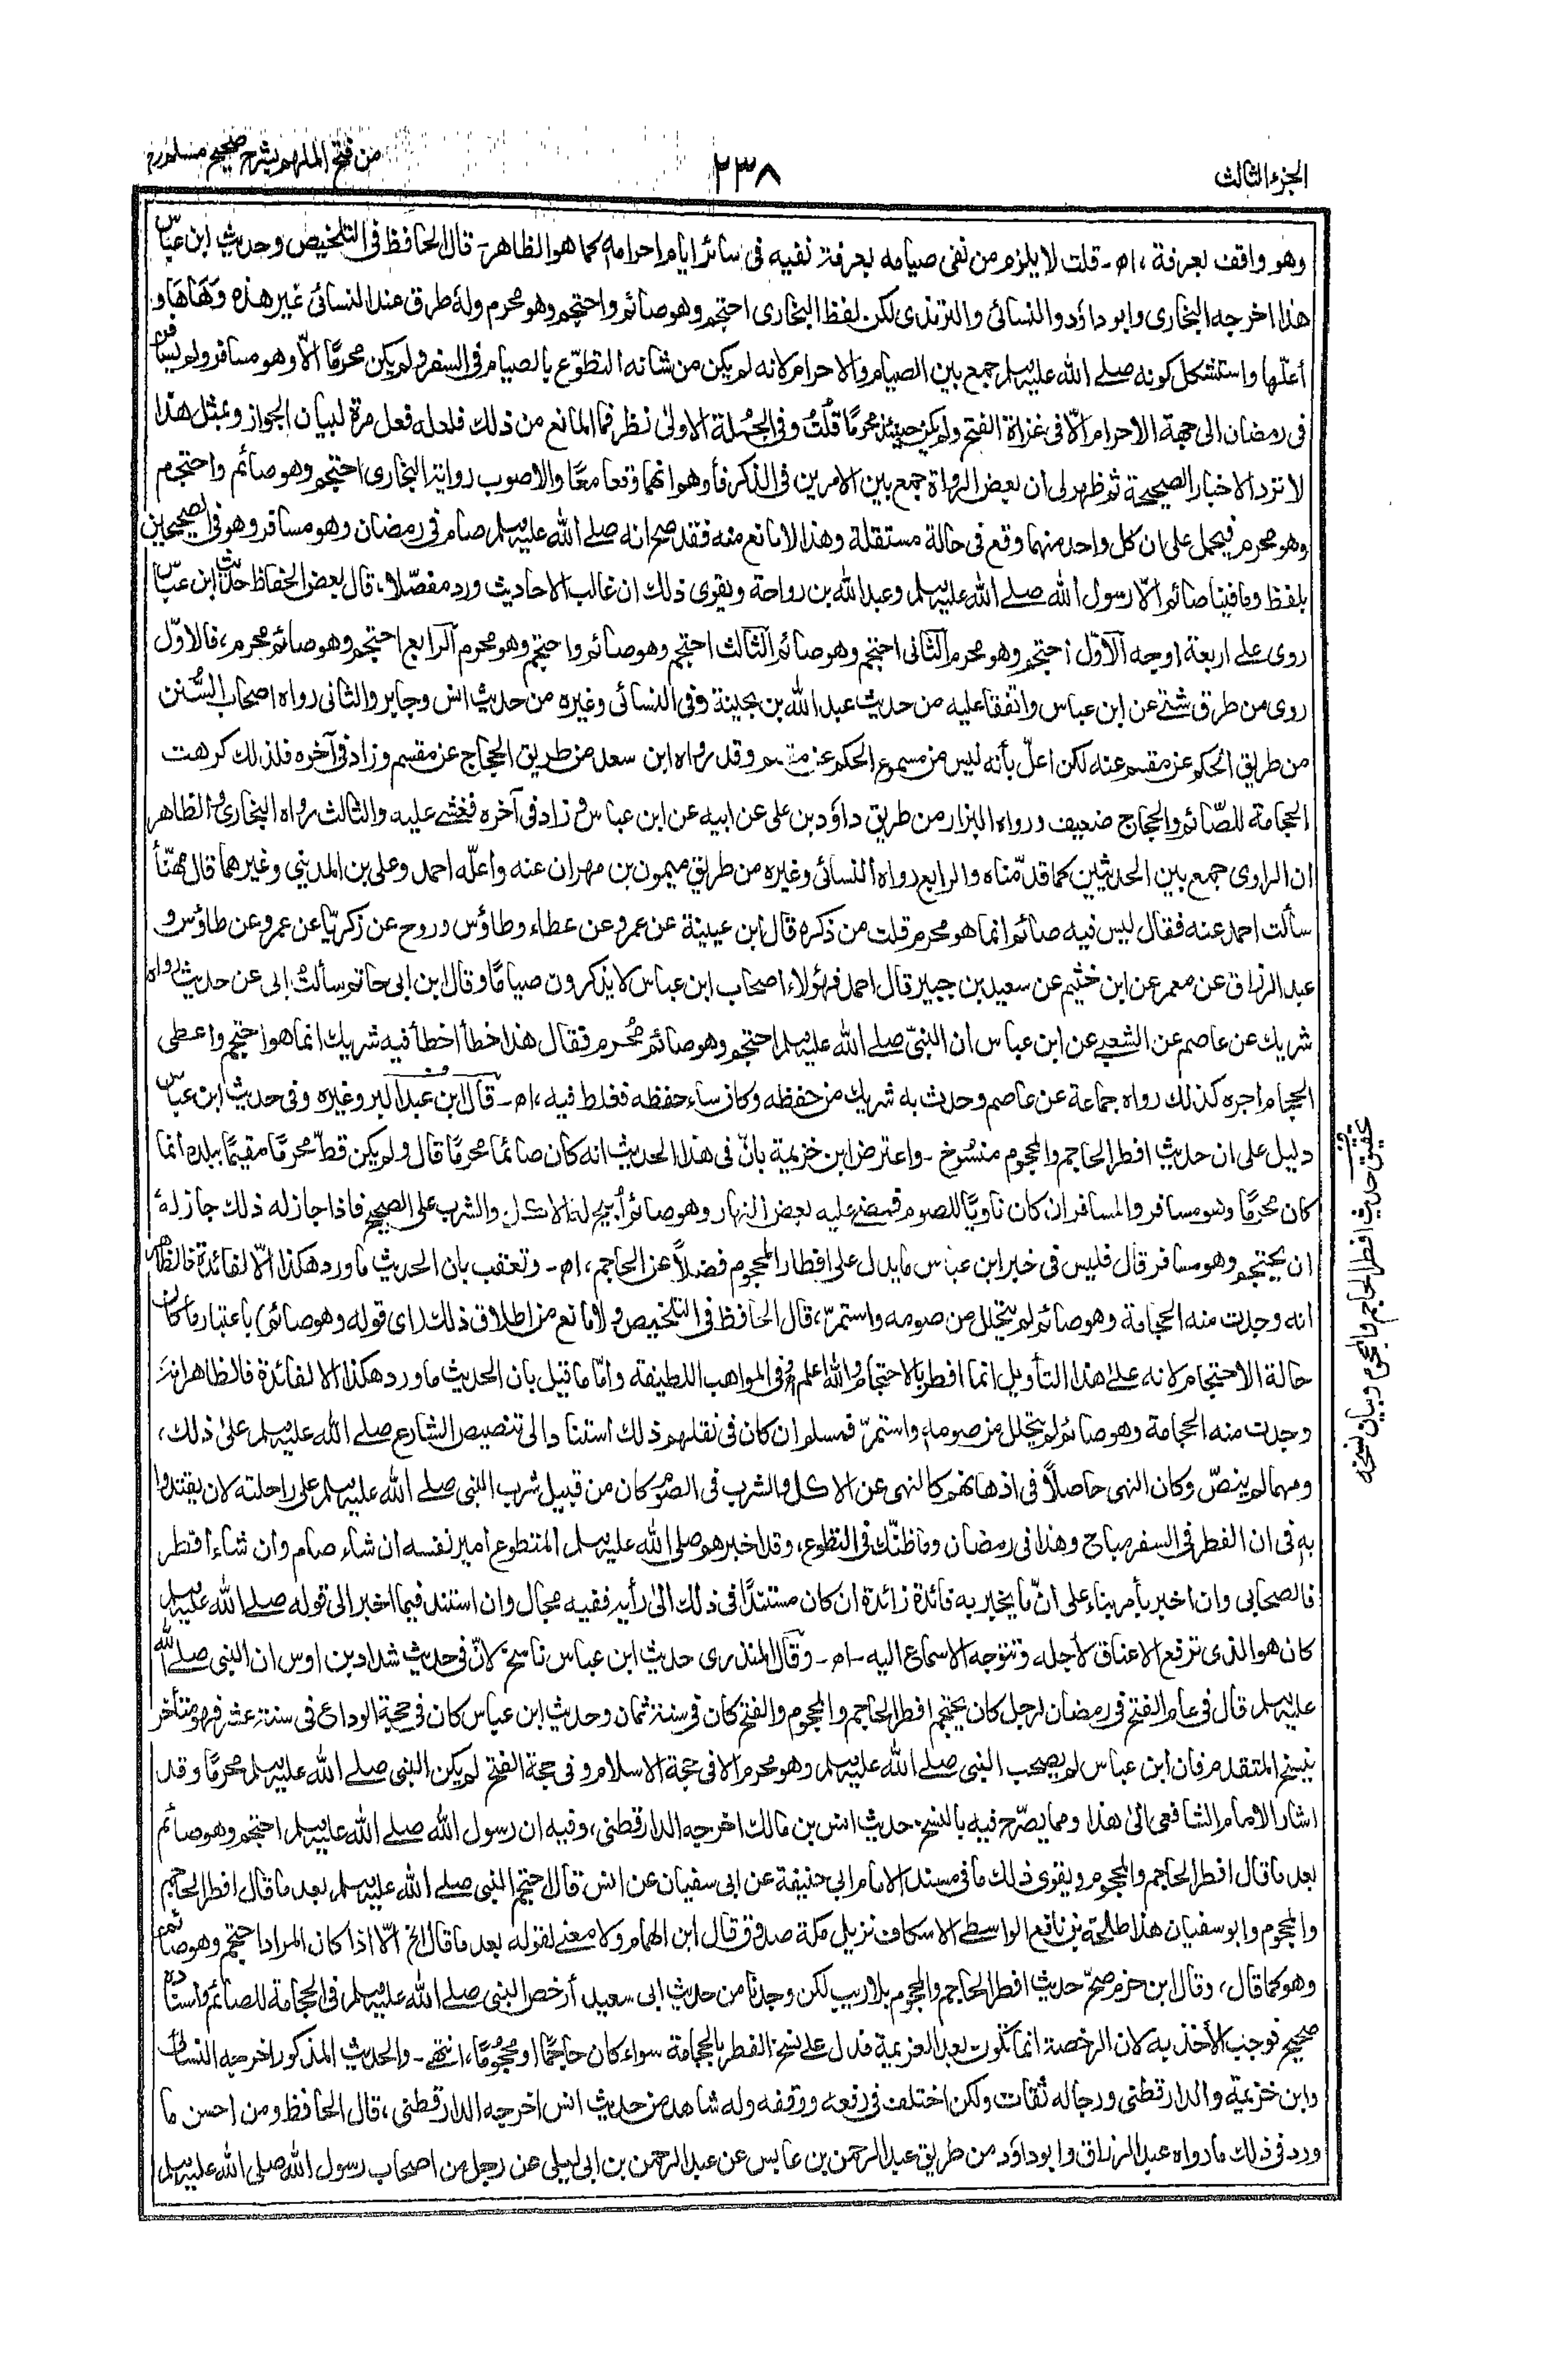 الجزء الثالث
٢٣٨
من فتح الملهم بشرح صحيح مسلم
وهو واقف بعرفة ، اه - قلت لا يلزم من نفى صيامه بعرفة نفيه فى سائر ايام احرامه كما هو الظاهر - قال الحافظ فى التلخيص وحديث ابن عباس
هذا اخرجه البخارى وابو داؤد والنسائى والترمذى لكن لفظ البخارى احتجم وهو صائم واحتجم وهو محرم وله طرق عند النسائى غير هذه وهاها و
أعلّها واستشكل كونه صلے الله عليه وسلم جمع بين الصيام والاحرام لانه لم يكن من شانه التطوّع بالصيام فى السفر ولم يكن محرمًا الّا وهو مسافر ولم يسافر
فى رمضان الى جهة الاحرام الّا فى غزاة الفتح ولم يكن حينئذ محرمًا قلتُ وفى الجملة الاولىٰ نظر فما المانع من ذلك فلعله فعل مرة لبيان الجواز وبمثل هذا
لا ترد الاخبار الصحيحة ثم ظهر لى ان بعض الرواة جمع بين الامرين فى الذكر فأوهم انهما وقعا معًا والاصوب رواية البخارى احتجم وهو صائم واحتجم
وهو محرم فيحمل على ان كل واحد منهما وقع فى حالة مستقلة وهذا لا مانع منه فقد صح انه صلے الله عليه وسلم صام فى رمضان وهو مسافر وهو فى الصحيحين
بلفظ وما فينا صائم الّا رسول الله صلے الله عليه وسلم وعبد الله بن رواحة ويقوى ذلك ان غالب الاحاديث ورد مفصّلا ، قال بعض الحفاظ حديث ابن عباس
روى علے اربعة اوجه الاوّل احتجم وهو محرم الثانى احتجم وهو صائم الثالث احتجم وهو صائم واحتجم وهو محرم الرابع احتجم وهو صائم محرم ، فالاوّل
روى من طرق شتى عن ابن عباس واتفقا عليه من حديث عبد الله بن بحينة وفى النسائى وغيره من حديث انس وجابر والثانى رواه اصحاب السُّنن
من طريق الحكم عن مقسم عنه لكن اعلّ بأنه ليس من مسموع الحكم عن مقسم وقد رواه ابن سعد من طريق الحجاج عن مقسم وزاد فى آخره فلذلك كرهت
الحجامة للصّائم والحجاج ضعيف ورواه البزار من طريق داؤد بن على عن ابيه عن ابن عباس وزاد فى آخره فغشى عليه والثالث رواه البخارى والظاهر
ان الراوى جمع بين الحديثين كما قدّمناه والرابع رواه النسائى وغيره من طريق ميمون بن مهران عنه واعلّه احمد وعلى بن المدينى وغيرهما قال مهنّأ
سألت احمد عنه فقال ليس فيه صائم انما هو محرم قلت من ذكره قال ابن عيينة عن عمرو عن عطاء وطاؤس وروح عن زكريّا عن عمرو عن طاؤس و
عبد الرزاق عن معمر عن ابن خثيم عن سعيد بن جبير قال احمد فهؤلاء اصحاب ابن عباس لا يذكرون صيامًا وقال ابن ابى حاتم سألتُ ابى عن حديث رواه
شريك عن عاصم عن الشعبى عن ابن عباس ان النبىّ صلے الله عليه وسلم احتجم وهو صائم مُحرم فقال هذا خطأ اخطأ فيه شريك انما هو احتجم واعطى
الحجام اجره كذلك رواه جماعة عن عاصم وحدث به شريك من حفظه وكان ساء حفظه فغلط فيه ، اه - قال ابن عبد البر وغيره وفى حديث ابن عباس
دليل على ان حديث افطر الحاجم والمحجوم منسُوخ - واعترض ابن خزيمة بانّ فى هذا الحديث انه كان صائمًا محرمًا قال ولم يكن قطّ محرمًا مقيمًا ببلده انما
كان محرمًا وهو مسافر والمسافر ان كان ناويًا للصوم فمضى عليه بعض النهار وهو صائم أبيح له الاكل والشرب على الصحيح فاذا جاز له ذلك جاز لهٗ
ان يحتجم وهو مسافر قال فليس فى خبر ابن عباس ما يدل على افطار المحجوم فضلاً عن الحاجم ، اه - وتعقب بان الحديث ما ورد هكذا الّا لفائدة فالظاهر
انه وجدت منه الحجامة وهو صائم لم يتحلل من صومه واستمرّ ، قال الحافظ فى التلخيص ولا مانع من اطلاق ذلك (اى قوله وهو صائم) باعتبار ما كان
حالة الاحتجام لانه على هذا التأويل انما افطر بالاحتجام والله اعلم وفى المواهب اللطيفة وامّا ما قيل بان الحديث ما ورد هكذا الا لفائدة فالظاهر انه
وجدت منه الحجامة وهو صائم لم يتحلل من صومه واستمرّ فمسلم ان كان فى نقلهم ذلك استنادا لى تنصيص الشارع صلے الله عليه وسلم علىٰ ذلك ،
ومهما لم ينصّ وكان النهى حاصلاً فى اذهانهم كالنهى عن الاكل والشرب فى الصوم كان من قبيل شرب النبى صلے الله عليه وسلم على راحلته لان يقتدوا
به فى ان الفطر فى السفر مباح وهذا فى رمضان وما ظنّك فى التطوع ، وقد اخبر هو صلى الله عليه وسلم المتطوع امير نفسه ان شاء صام وان شاء افطر
فالصحابى وان اخبر بأمر بناء على انّ ما يخبر به فائدة زائدة ان كان مستندًا فى ذلك الىٰ رأيه ففيه مجال وان استند فيما اخبر الى قوله صلے الله عليه وسلم
كان هو الذى ترفع الاعناق لاجله وتتوجه الاسماع اليه - اه - وقال المنذرى حديث ابن عباس ناسخ لانّ فى حديث شداد بن اوس ان النبى صلے الله
عليه وسلم قال فى عام الفتح فى رمضان لرجل كان يحتجم افطر الحاجم والمحجوم والفتح كان فى سنة ثمان وحديث ابن عباس كان فى حجة الوداع فى سنة عشر فهو متأخر
ينسخ المتقدم فان ابن عباس لم يصحب النبى صلے الله عليه وسلم وهو محرم الا فى حجة الاسلام وفى حجة الفتح لم يكن النبى صلے الله عليه وسلم محرمًا وقد
اشار الامام الشافعى الىٰ هذا ومما يصرّح فيه بالنسخ حديث انس بن مالك اخرجه الدارقطنى ، وفيه ان رسول الله صلے الله عليه وسلم احتجم وهو صائم
بعد ما قال افطر الحاجم والمحجوم ويقوى ذلك ما فى مسند الامام ابى حنيفة عن ابى سفيان عن انس قال احتجم النبى صلے الله عليه وسلم بعد ما قال افطر الحاجم
والمحجوم وابو سفيان هذا طلحة بن نافع الواسطے الاسكاف نزيل مكة صدوق قال ابن الهمام ولا معنى لقوله بعد ما قال الخ الّا اذا كان المراد احتجم وهو صائم
وهو كما قال ، وقال ابن حزم صحّ حديث افطر الحاجم والمحجوم بلا ريب لكن وجدنا من حديث ابى سعيد أرخص النبى صلے الله عليه وسلم فى الحجامة للصائم واسناده
صحيح فوجب الأخذ به لان الرخصة انما تكون بعد العزيمة فدل على نسخ الفطر بالحجامة سواء كان حاجمًا او محجومًا ، انتهے - والحديث المذكور اخرجه النسائى
وابن خزيمة والدارقطنى ورجاله ثقات ولكن اختلف فى رفعه ووقفه وله شاهد من حديث انس اخرجه الدارقطنى ، قال الحافظ ومن احسن ما
ورد فى ذلك ما رواه عبد الرزاق وابو داؤد من طريق عبد الرحمن بن عابس عن عبد الرحمن بن ابى ليلى عن رجل من اصحاب رسول الله صلى الله عليه وسلم
تحقيق حديث افطر الحاجم والمحجوم وبيان نسخه